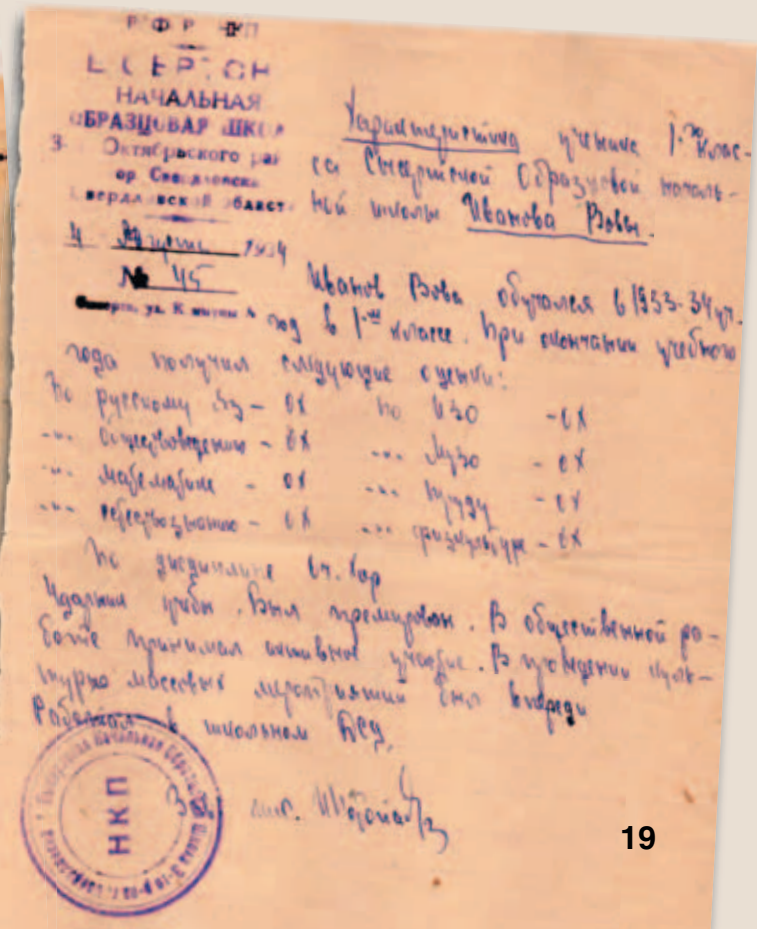 НАЧАЛЬНАЯ
ОБРАЗЦОВАЯ ШКОЛ
Октябрьского рай
гор Свердловска
Свердловской област
4 Августа 1934
№ 45
Характеристика ученика 1-го клас-
са Сысертской Образцовой началь-
ной школы Иванова Вовы.
Иванов Вова обучался в 1933-34 уч.
год в 1-м классе. При окончании учебного
года получил следующие оценки:
По русскому яз – ох по ИЗО – ох
-"- обществоведению – ох -"- Музо – ох
-"- математике – ох -"- труду – ох
-"- естествознанию – ох -"- физкультуре – ох
По дисциплине оч. хор
Ударник учебы. Был премирован. В общественной ра-
боте принимал активное участие. В проведении куль-
турно массовых мероприятий был впереди
Работал в школьном
НКП
Зав.
19